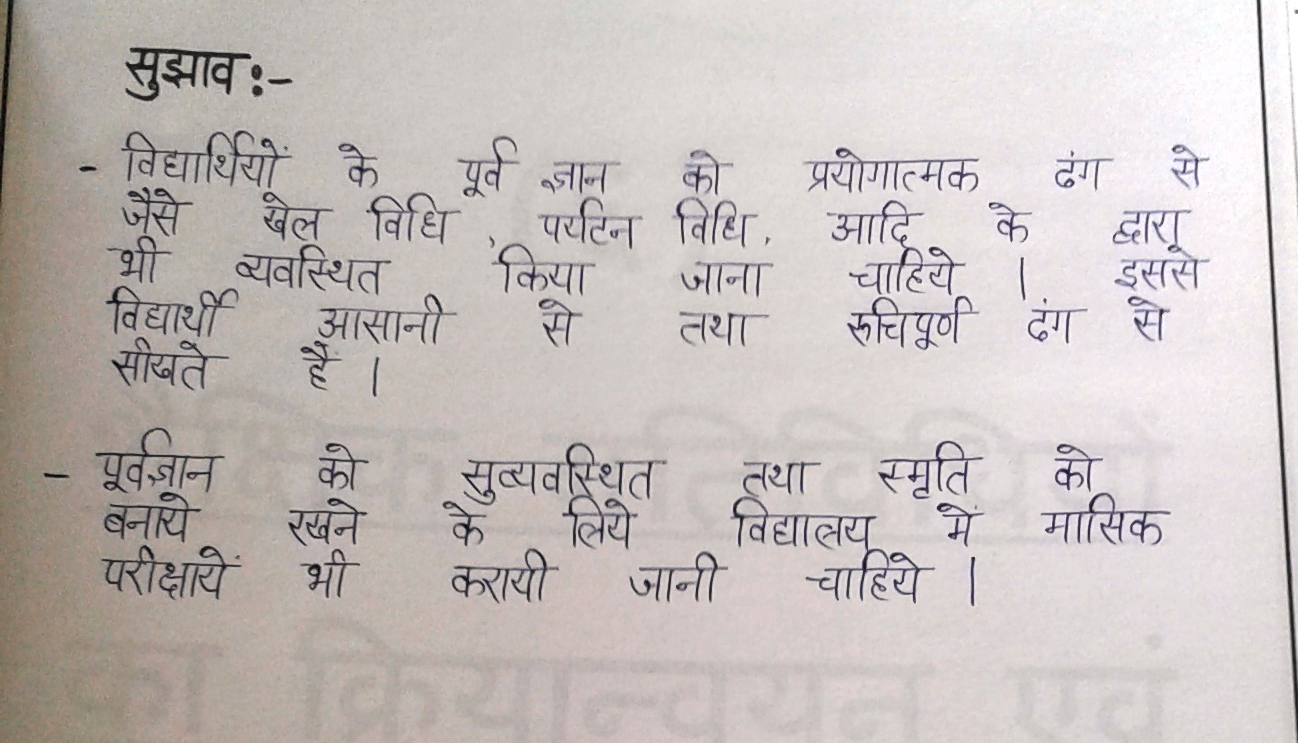 सुझाव :-
- विद्यार्थियों के पूर्व ज्ञान को प्रयोगात्मक ढंग से
जैसे खेल विधि, पर्यटन विधि, आदि के द्वारा
भी व्यवस्थित किया जाना चाहिये । इससे
विद्यार्थी आसानी से तथा रूचिपूर्ण ढंग से
सीखते हैं ।
- पूर्वज्ञान को सुव्यवस्थित तथा स्मृति को
बनाये रखने के लिये विद्यालय में मासिक
परीक्षायें भी करायी जानी चाहिये ।
का क्रियान्वयन एवं